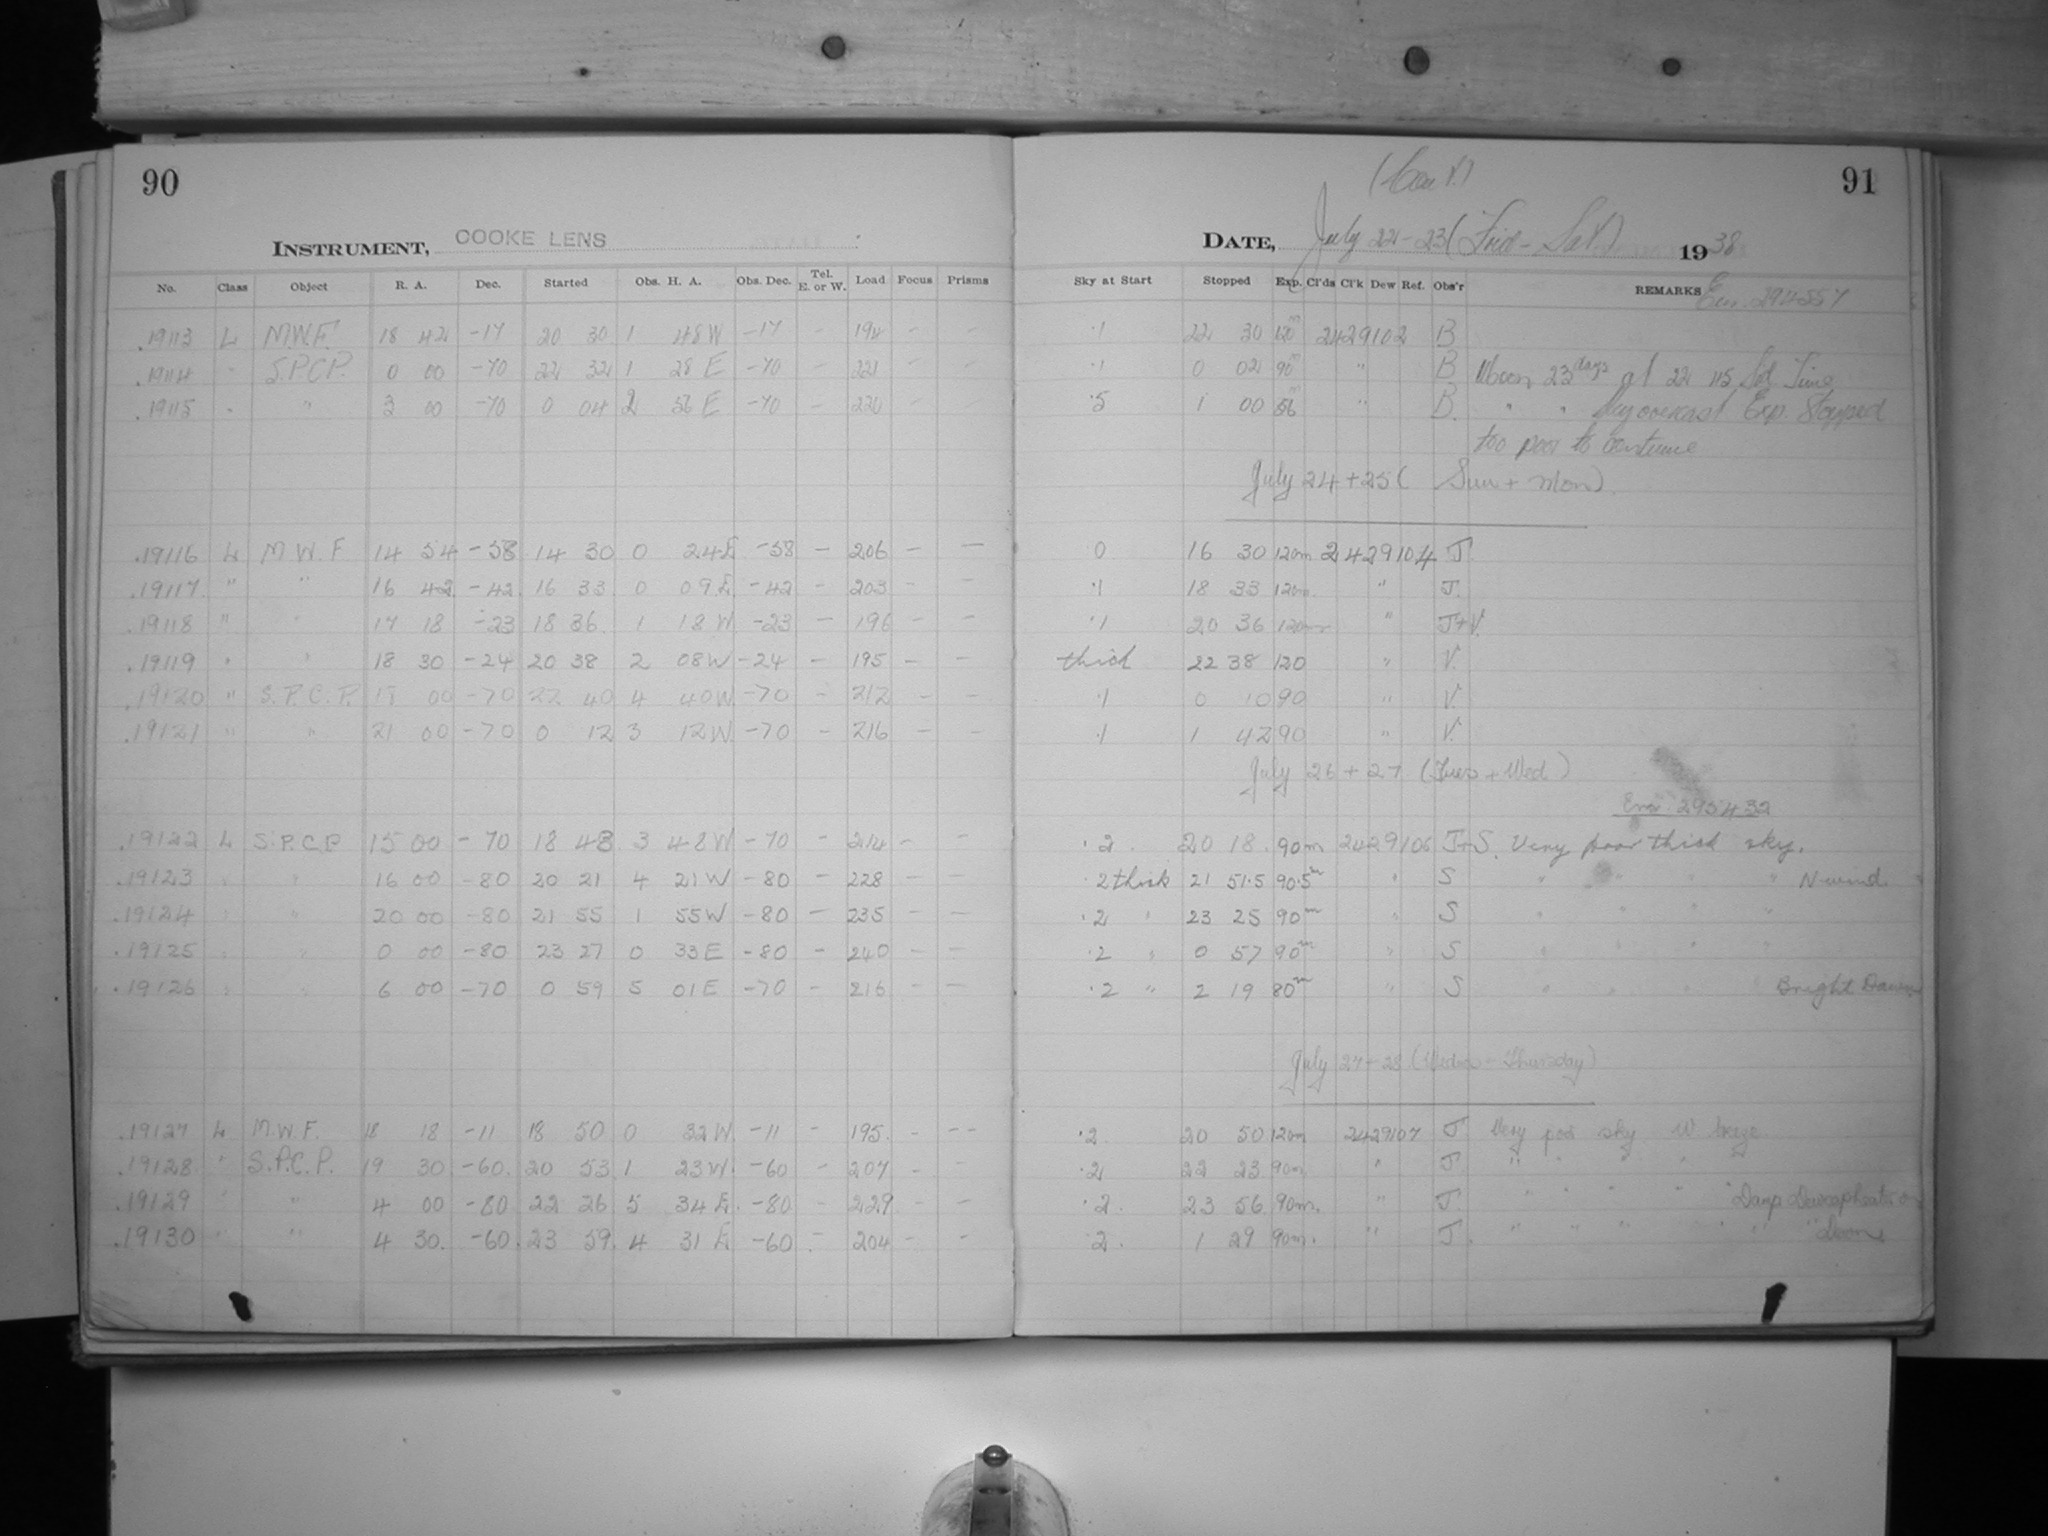 90
INSTRUMENT, COOKE LENS
No. Class Object R. A. Dec. Started Obs. H. A. Obs. Dec. Tel. E. or W. Load Focus Prisms
.19113 L M.W.F. 18 42 -17 20 30 1 48 W -17 - 194 - -
.19114 " S.P.C.P. 0 00 -70 22 32 1 28 E -70 - 221 - -
.19115 " " 3 00 -70 0 04 2 56 E -70 - 220 - -
.19116 L M.W.F 14 54 -58 14 30 0 24 E -58 - 206 - -
.19117 " " 16 42 -42 16 33 0 09 E -42 - 203 - -
.19118 " " 17 18 -23 18 36 1 18 W -23 - 196 - -
.19119 " " 18 30 -24 20 38 2 08 W -24 - 195 - -
.19120 " S.P.C.P. 00 -70 22 40 4 40 W -70 - 212 - -
.19121 " " 21 00 -70 0 12 3 12 W -70 - 216 - -
.19122 L S.P.C.P 15 00 -70 18 48 3 48 W -70 - 214 - -
.19123 " " 16 00 -80 20 21 4 21 W -80 - 228 - -
.19124 " " 20 00 -80 21 55 1 55 W -80 - 235 - -
.19125 " " 0 00 -80 23 27 0 33 E -80 - 240 - -
.19126 " " 6 00 -70 0 59 5 01 E -70 - 216 - -
.19127 L M.W.F. 18 18 -11 18 50 0 32 W -11 - 195 - --
.19128 " S.P.C.P. 19 30 -60 20 53 1 23 W -60 - 207 - -
.19129 " " 4 00 -80 22 26 5 34 E -80 - 229 - -
.19130 " " 4 30 -60 23 59 4 31 E -60 - 204 - -
(Con't.)
91
DATE, July 22-23 (Frid - Sat) 1938
Sky at Start Stopped Exp. Cl'ds Cl'k Dew Ref. Obs'r REMARKS 294557
.1 22 30 120m 2429102 B
.1 0 02 90m " B Moon 23 days at 22 115 Sid Time
.5 1 00 56m " B. " " Sky overcast Exp. Stopped
too poor to continue
July 24 + 25 (Sun + Mon)
0 16 30 120m 2429104 J
.1 18 33 120m " J.
.1 20 36 120m " J+V.
thick 22 38 120 " V.
.1 0 10 90 " V.
.1 1 42 90 " V.
July 26 + 27 (Tues + Wed)
295432
.2 20 18 90m 2429106 J+S. Very poor thick sky.
.2 thick 21 51.5 90.5m " S " " " " N-wind.
.2 " 23 25 90m " S " " " "
.2 " 0 57 90m " S " " " "
.2 " 2 19 80m " S " " " " Bright Dawn
July 27 - 28 (Wednes - Thursday)
.2 20 50 120m 2429107 J Very poor sky W breeze
.2 22 23 90m " J " " " "
.2 23 56 90m. " J. " " " " Damp Dewcap heater on
.2 1 29 90m. " J. " " " " "